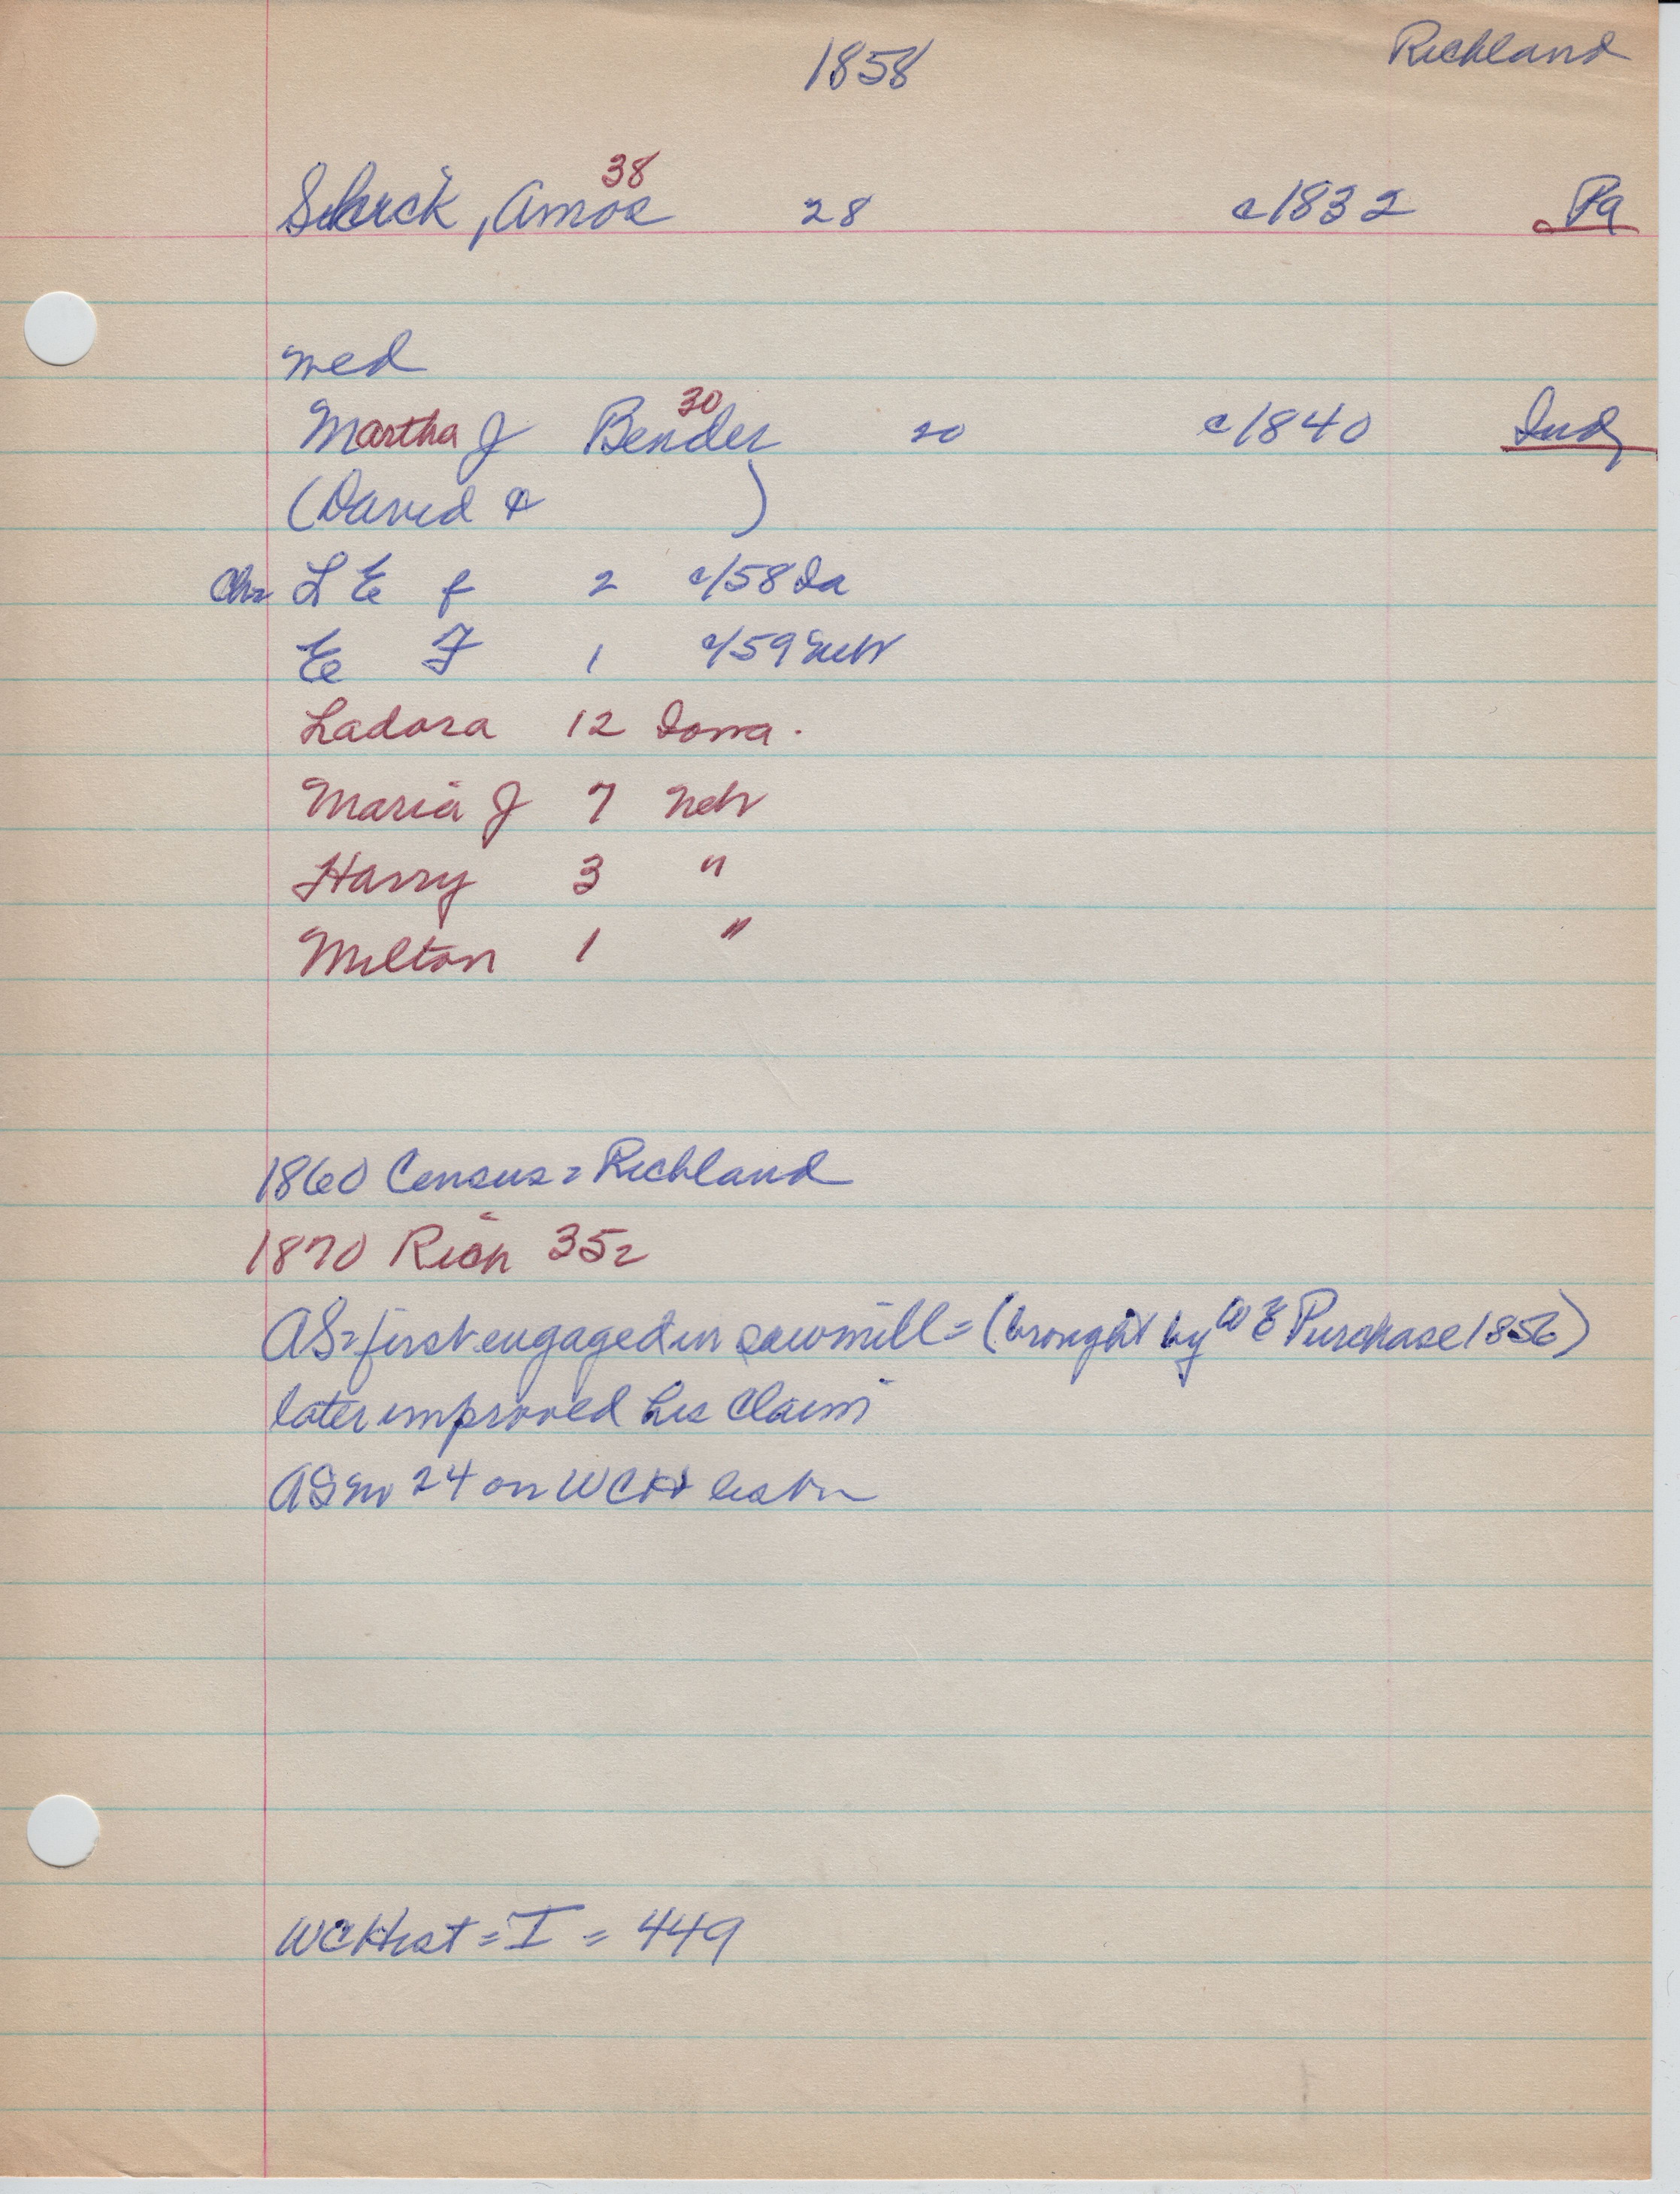 1858 Richland
38
Shuck, Amos 28 c1832 Pa
med
30
Martha J Bender 20 c1840 Ind
(David & )
Ch= L E f 2 c/58 Ia
E F 1 c/59 Neb
Ladora 12 Iowa.
Maria J 7 Neb
Harry 3 "
Milton 1 "
1860 Census = Richland
1870 Rich 352
AS = first engaged in sawmill = (brought by W E Purchase 1856)
later improved his claim
AS 24 on WCH
WCHist = I = 449